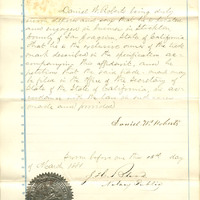 Daniel W. Roberts being duly
sworn deposes and says that he is
and engaged in business in Stockton
County of San Joaquin State of California
that he is the exclusive owner of the trade
mark described in the specification ac-
companying this affidavit, and he
petitions that the same trade mark may
be filed in the Office of the Secretary
of State of the State of California, in acc-
ordance with the law in such cases
made and provided
Daniel W. Roberts
Sworn before me this day
of March
Notary Public